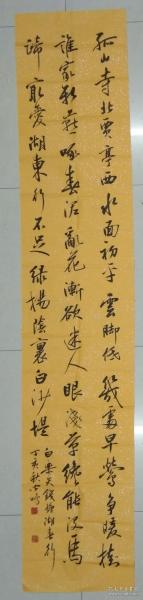 孤山寺北賈亭西水面初平雲脚低幾處早鶯争暖樹
誰家新燕啄春泥亂花漸欲迷人眼淺草纔能没馬
蹄最愛湖東行不足綠楊蔭裏白沙堤
白樂天錢塘湖春行
丁亥秋